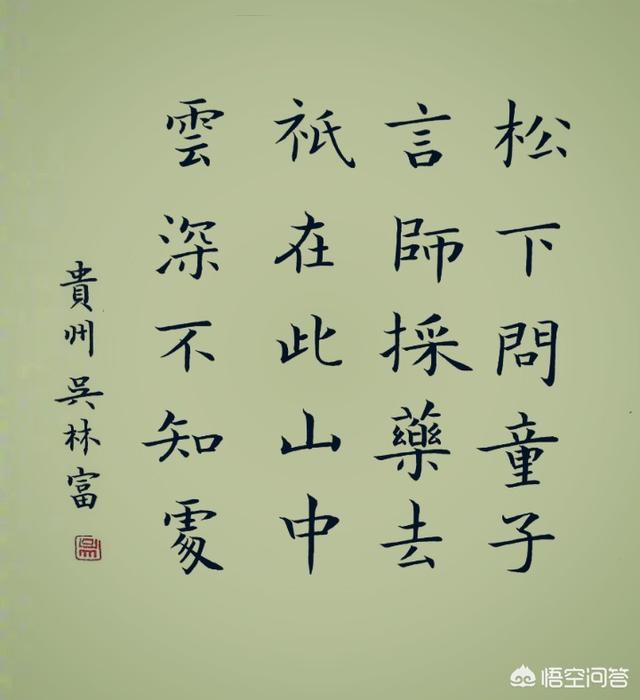 松下問童子
言師採藥去
祇在此山中
雲深不知處
貴州吳林富
悟空问答